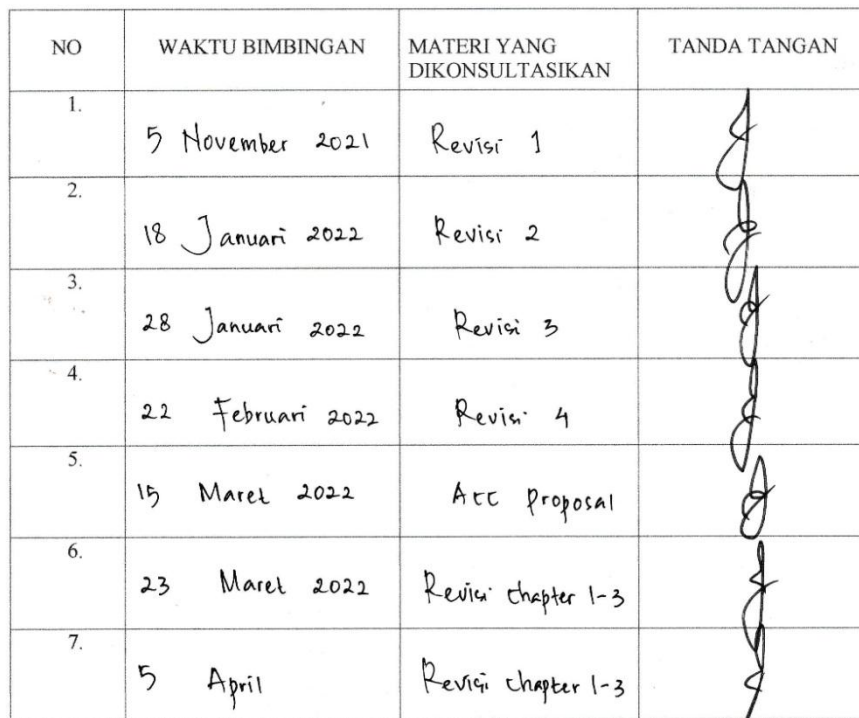 NO WAKTU BIMBINGAN MATERI YANG DIKONSULTASIKAN TANDA TANGAN
1. 5 November 2021 Revisi 1
2. 18 Januari 2022 Revisi 2
3. 28 Januari 2022 Revisi 3
4. 22 Februari 2022 Revisi 4
5. 15 Maret 2022 Acc Proposal
6. 23 Maret 2022 Revisi chapter 1-3
7. 5 April Revisi chapter 1-3